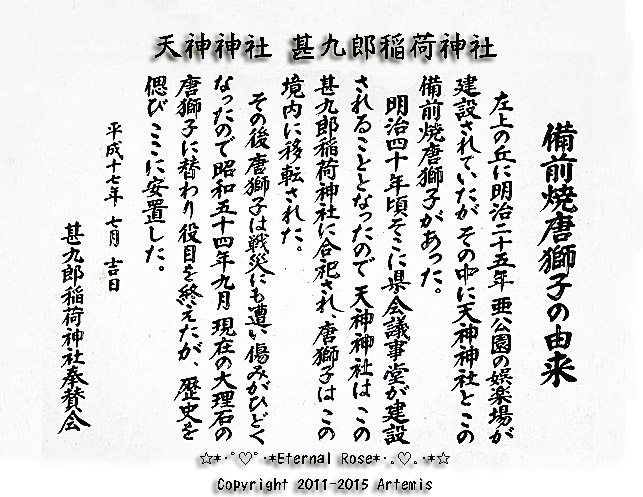 天神神社 甚九郎稲荷神社
備前焼唐獅子の由来
左上の丘に明治二十五年 亜公園の娯楽場が
建設されていたが その中に天神神社と この
備前焼唐獅子があった。
明治四十年頃そこに県会議事堂が建設
されることとなったので 天神神社は この
甚九郎稲荷神社に合祀され、唐獅子は この
境内に移転された。
その後 唐獅子は戦災にも遭い 傷みがひどく
なったので 昭和五十四年九月 現在の大理石の
唐獅子に替わり役目を終えたが、歴史を
偲び ここに安置した。
平成十七年 七月 吉日
甚九郎稲荷神社奉賛会
☆*･ﾟ♡ﾟ･*Eternal Rose*･｡♡｡･*☆
Copyright 2011-2015 Artemis